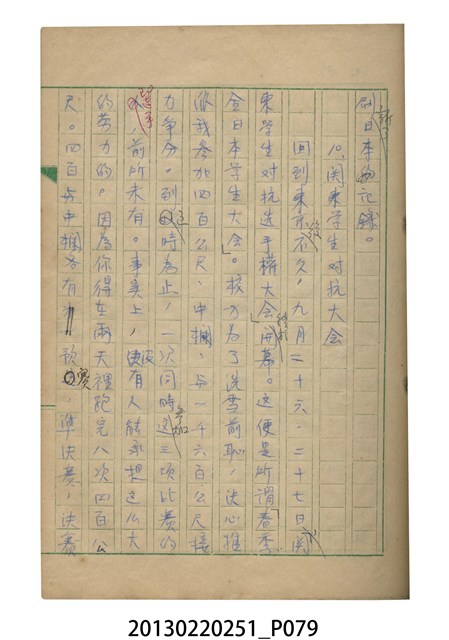 刷新了日本的記錄。
10.関東学生対抗大会
回到東京後不久,九月二十六、二十七日,関
東学生対抗选手權大会」終於開幕。这便是所谓「春季
全日本学生大会」。校方为了洗雪前恥,決心推
派我参加四百公尺、中欄、与一千六百公尺接
力爭分。到這時為止,一次同時参加这三项比赛的
選手,前所未有。事实上,沒有人能承担这么大
的劳力的。因為你得在兩天裡跑完八次四百公
尺。四百与中欄各有预賽,準決賽,決賽
20130220251_P079